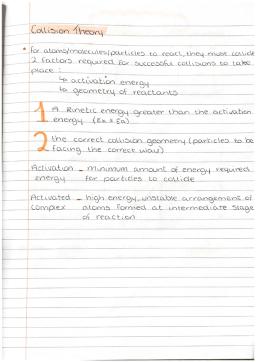 Collision Theory
• for atoms/molecules/particles to react, they must collide
2 factors required for successful collisions to take
place :
↳ activation energy
↳ geometry of reactants
1 A kinetic energy greater than the activation
energy (Ek ≥ Ea)
2 the correct collision geometry (particles to be
facing the correct way)
Activation – minimum amount of energy required
energy for particles to collide
Activated – high energy, unstable arrangement of
complex atoms formed at intermediate stage
of reaction